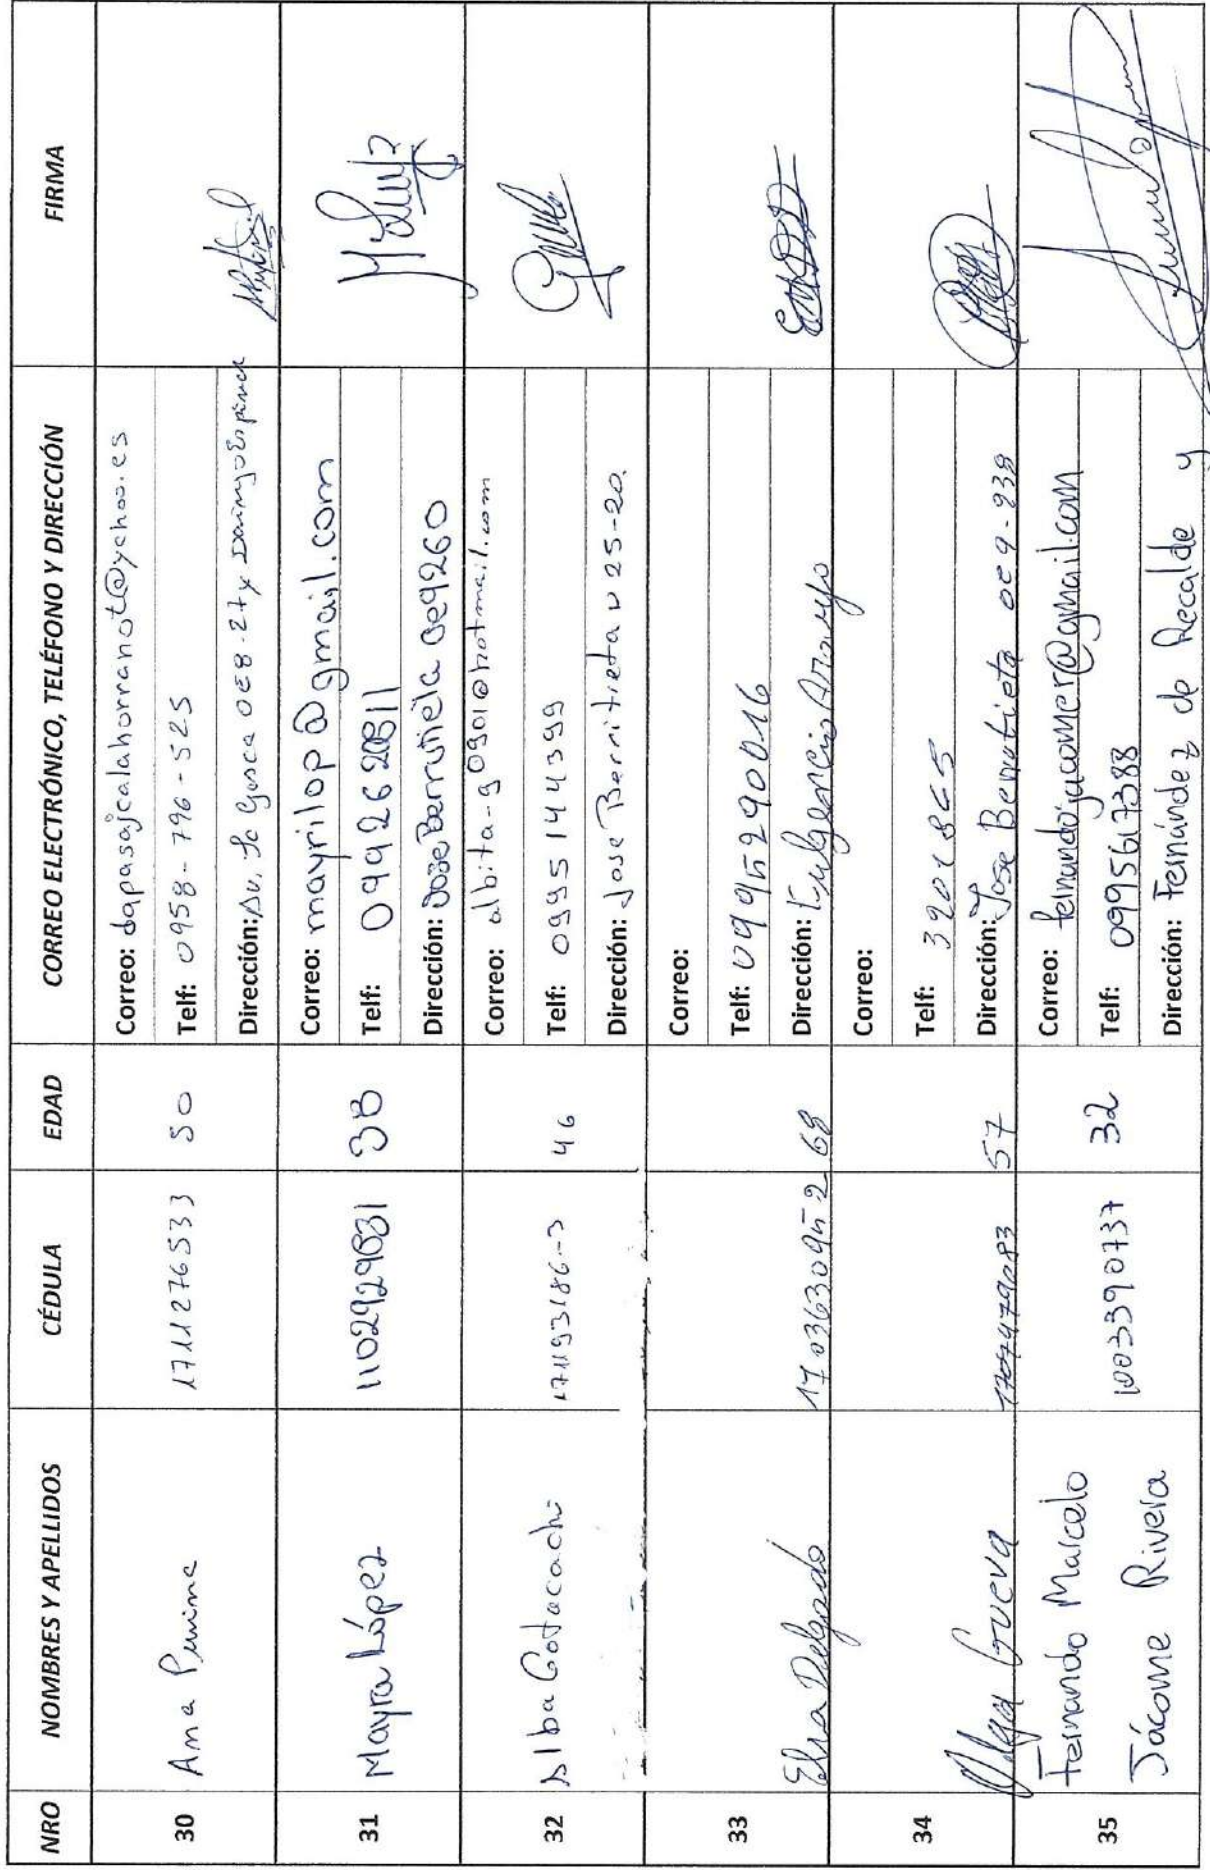 NRO NOMBRES Y APELLIDOS CÉDULA EDAD CORREO ELECTRÓNICO, TELÉFONO Y DIRECCIÓN FIRMA
30 Ana 1711276533 50
Correo: dapasajcalahorrano1@yahoo.es
Telf: 0958-796-525
Dirección: Av. La Gasca OE8-27 y
31 Mayra López 1102929831 38
Correo: mayrilop@gmail.com
Telf: 099262
Dirección: Jose
32 Alba Cotacachi 171193186-3 46
Correo: albita-g0901@hotmail.com
Telf: 0995144399
Dirección: Jose Berrutieta N25-20.
33 Elsa Delgado 68
Correo:
Telf: 0995290016
Dirección: Fulgencio Araujo
34 Olga Cueva 57
Correo:
Telf: 3201865
Dirección: Jose Berrutieta oe9-238
35 Fernando Marcelo
Jácome Rivera 1003390737 32
Correo: fernandojacomer@gmail.com
Telf: 0995617388
Dirección: Fernández de Recalde y